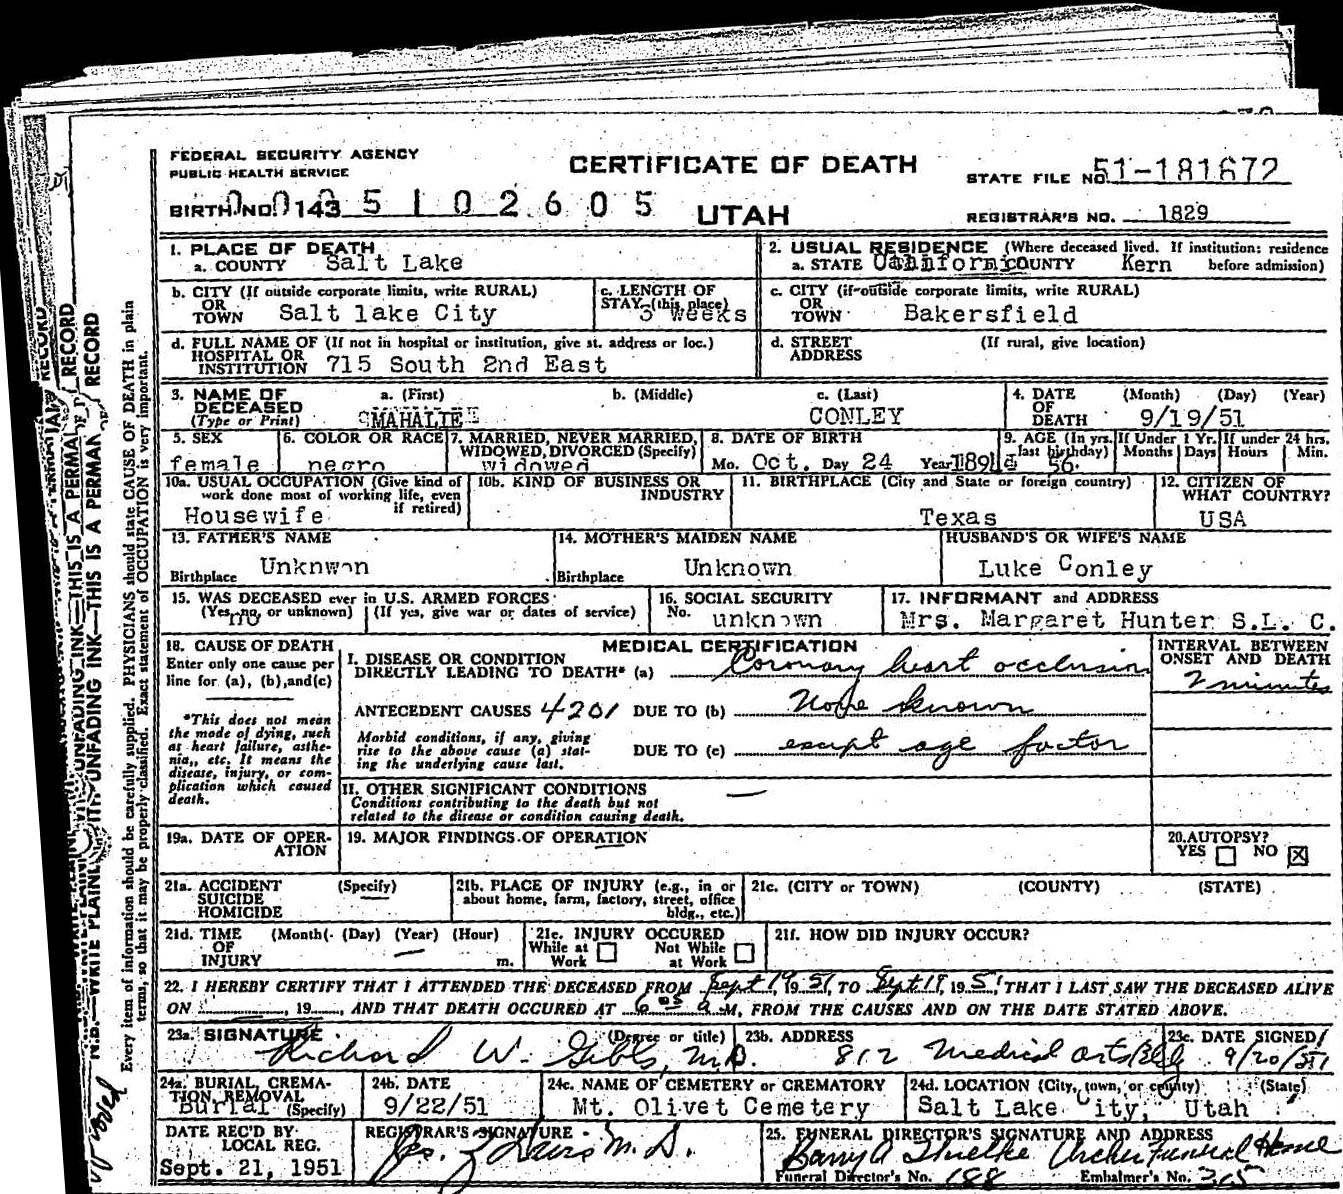 FEDERAL SECURITY AGENCY
PUBLIC HEALTH SERVICE
CERTIFICATE OF DEATH
STATE FILE NO. 51-181672
BIRTH NO. 143 5102605
UTAH
REGISTRAR'S NO. 1829
1. PLACE OF DEATH
a. COUNTY Salt Lake
2. USUAL RESIDENCE (Where deceased lived. If institution: residence
a. STATE COUNTY Kern before admission)
b. CITY (If outside corporate limits, write RURAL)
OR
TOWN Salt lake City
c. LENGTH OF
STAY (this place)
3 weeks
c. CITY (if outside corporate limits, write RURAL)
OR
TOWN Bakersfield
d. FULL NAME OF (If not in hospital or institution, give st. address or loc.)
HOSPITAL OR
INSTITUTION 715 South 2nd East
d. STREET (If rural, give location)
ADDRESS
3. NAME OF a. (First) b. (Middle) c. (Last)
DECEASED
(Type or Print) MAHALIE CONLEY
4. DATE (Month) (Day) (Year)
OF
DEATH 9/19/51
5. SEX
female
6. COLOR OR RACE
negro
7. MARRIED, NEVER MARRIED,
WIDOWED, DIVORCED (Specify)
widowed
8. DATE OF BIRTH
Mo. Oct. Day 24 Year 189
9. AGE (In yrs. If Under 1 Yr. If under 24 hrs.
last birthday) Months Days Hours Min.
56
10a. USUAL OCCUPATION (Give kind of
work done most of working life, even
if retired)
Housewife
10b. KIND OF BUSINESS OR
INDUSTRY
11. BIRTHPLACE (City and State or foreign country)
Texas
12. CITIZEN OF
WHAT COUNTRY?
USA
13. FATHER'S NAME
Unknwon
Birthplace
14. MOTHER'S MAIDEN NAME
Unknown
Birthplace
HUSBAND'S OR WIFE'S NAME
Luke Conley
15. WAS DECEASED ever in U.S. ARMED FORCES
(Yes, no, or unknown) (If yes, give war or dates of service)
no
16. SOCIAL SECURITY
No. unknown
17. INFORMANT and ADDRESS
Mrs. Margaret Hunter S.L. C.
18. CAUSE OF DEATH
Enter only one cause per
line for (a), (b), and (c)
*This does not mean
the mode of dying, such
as heart failure, asthe-
nia, etc. It means the
disease, injury, or com-
plication which caused
death.
MEDICAL CERTIFICATION
I. DISEASE OR CONDITION
DIRECTLY LEADING TO DEATH* (a) Coronary heart occlusion
ANTECEDENT CAUSES 4201 DUE TO (b) None known
Morbid conditions, if any, giving
rise to the above cause (a) stat-
ing the underlying cause last.
DUE TO (c) except age factor
II. OTHER SIGNIFICANT CONDITIONS —
Conditions contributing to the death but not
related to the disease or condition causing death.
INTERVAL BETWEEN
ONSET AND DEATH
2 minutes
19a. DATE OF OPER-
ATION
19. MAJOR FINDINGS OF OPERATION
20. AUTOPSY?
YES ☐ NO ☒
21a. ACCIDENT (Specify)
SUICIDE —
HOMICIDE
21b. PLACE OF INJURY (e.g., in or
about home, farm, factory, street, office
bldg., etc.)
21c. (CITY or TOWN) (COUNTY) (STATE)
21d. TIME (Month) (Day) (Year) (Hour)
OF —
INJURY m.
21e. INJURY OCCURED
While at ☐ Not While ☐
Work at Work
21f. HOW DID INJURY OCCUR?
22. I HEREBY CERTIFY THAT I ATTENDED THE DECEASED FROM Sept 1, 1951, TO Sept 18, 1951, THAT I LAST SAW THE DECEASED ALIVE
ON , 19 , AND THAT DEATH OCCURED AT 6 05 a M, FROM THE CAUSES AND ON THE DATE STATED ABOVE.
23a. SIGNATURE (Degree or title)
Richard W. Gibbs, M.D.
23b. ADDRESS
812 Medical Arts Bldg
23c. DATE SIGNED
9/20/51
24a. BURIAL, CREMA-
TION, REMOVAL
Burial (Specify)
24b. DATE
9/22/51
24c. NAME OF CEMETERY or CREMATORY
Mt. Olivet Cemetery
24d. LOCATION (City, town, or county) (State)
Salt Lake City, Utah
DATE REC'D BY
LOCAL REG.
Sept. 21, 1951
REGISTRAR'S SIGNATURE
M.D.
25. FUNERAL DIRECTOR'S SIGNATURE AND ADDRESS
Archer Funeral Home
Funeral Director's No. 188 Embalmer's No. 365
N.B.—WRITE PLAINLY WITH UNFADING INK—THIS IS A PERMANENT RECORD
Every item of information should be carefully supplied. PHYSICIANS should state CAUSE OF DEATH in plain
terms, so that it may be properly classified. Exact statement of OCCUPATION is very important.